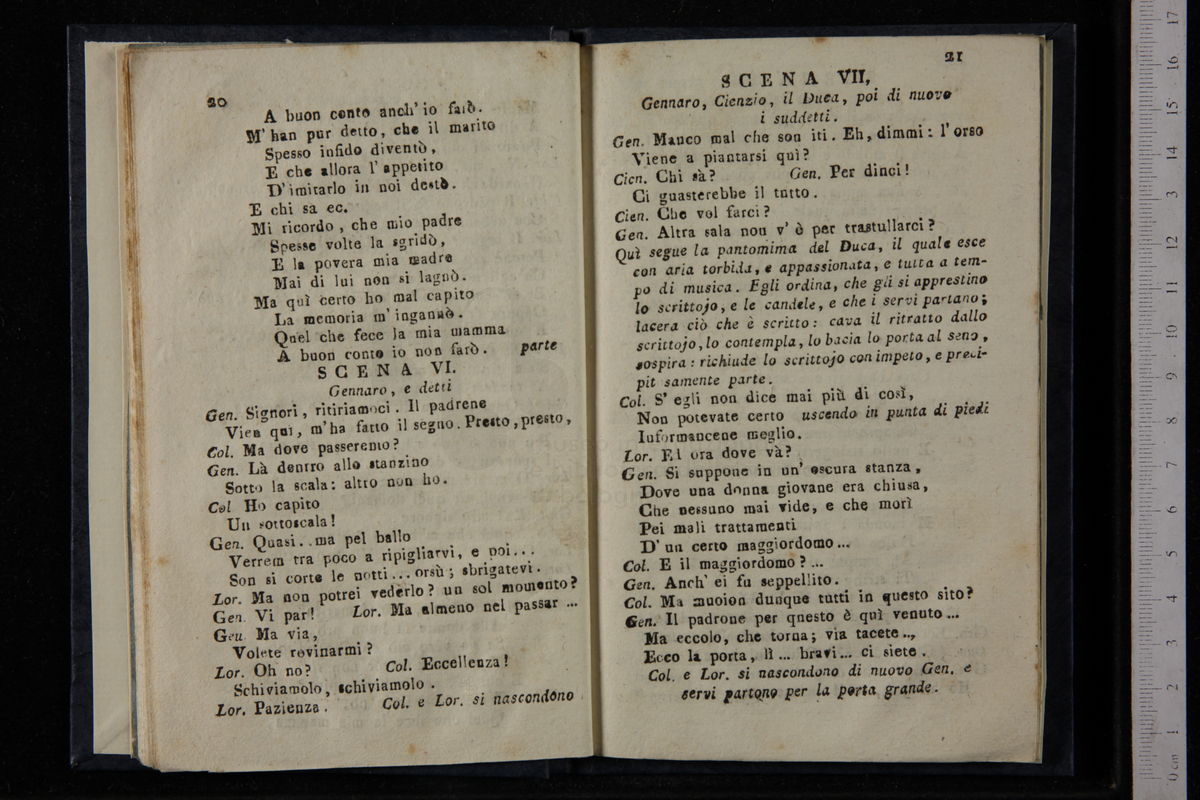 20
A buon conto anch' io farò.
M' han pur detto, che il marito
Spesso infido diventò,
E che allora l' appetito
D' imitarlo in noi destò.
E chi sa ec.
Mi ricordo, che mio padre
Spesse volte la sgridò,
E la povera mia madre
Mai di lui non si lagnò.
Ma quì certo ho mal capito
La memoria m' ingannò.
Quel che fece la mia mamma
A buon conto io non farò. parte
SCENA VI.
Gennaro, e detti
Gen. Signori, ritiriamoci. Il padrene
Vien quì, m'ha fatto il segno. Presto, presto,
Col. Ma dove passeremo?
Gen. Là dentro allo stanzino
Sotto la scala: altro non ho.
Col Ho capito
Un sottoscala!
Gen. Quasi.. ma pel ballo
Verrem tra poco a ripigliarvi, e poi...
Son si corte le notti... orsù; sbrigatevi.
Lor. Ma non potrei vederlo? un sol momento?
Gen. Vi par! Lor. Ma almeno nel passar ...
Gen Ma via,
Volete rovinarmi?
Lor. Oh no? Col. Eccellenza!
Schiviamolo, schiviamolo.
Lor. Pazienza. Col. e Lor. si nascondono
21
SCENA VII,
Gennaro, Cienzio, il Duca, poi di nuovo
i suddetti.
Gen. Manco mal che son iti. Eh, dimmi: l' orso
Viene a piantarsi quì?
Cien. Chi sà? Gen. Per dinci!
Ci guasterebbe il tutto.
Cien. Che vol farci?
Gen. Altra sala non v' è per trastullarci?
Quì segue la pantomima del Duca, il quale esce
con aria torbida, e appassionata, e tutta a tem-
po di musica. Egli ordina, che gli si apprestino
lo scrittojo, e le candele, e che i servi partano;
lacera ciò che è scritto: cava il ritratto dallo
scrittojo, lo contempla, lo bacia lo porta al seno,
sospira: richiude lo scrittojo con impeto, e preci-
pit samente parte.
Col. S' egli non dice mai più di così,
Non potevate certo uscendo in punta di piedi
Informancene meglio.
Lor. Ed ora dove và?
Gen. Si suppone in un' oscura stanza,
Dove una donna giovane era chiusa,
Che nessuno mai vide, e che morì
Pei mali trattamenti
D' un certo maggiordomo...
Col. E il maggiordomo?...
Gen. Anch' ei fu seppellito.
Col. Ma muoion dunque tutti in questo sito?
Gen. Il padrone per questo è quì venuto...
Ma eccolo, che torna; via tacete..,
Ecco la porta, lì... bravi... ci siete.
Col. e Lor. si nascondono di nuovo Gen. e
servi partono per la porta grande.
0 cm 1 2 3 4 5 6 7 8 9 10 11 12 13 14 15 16 17